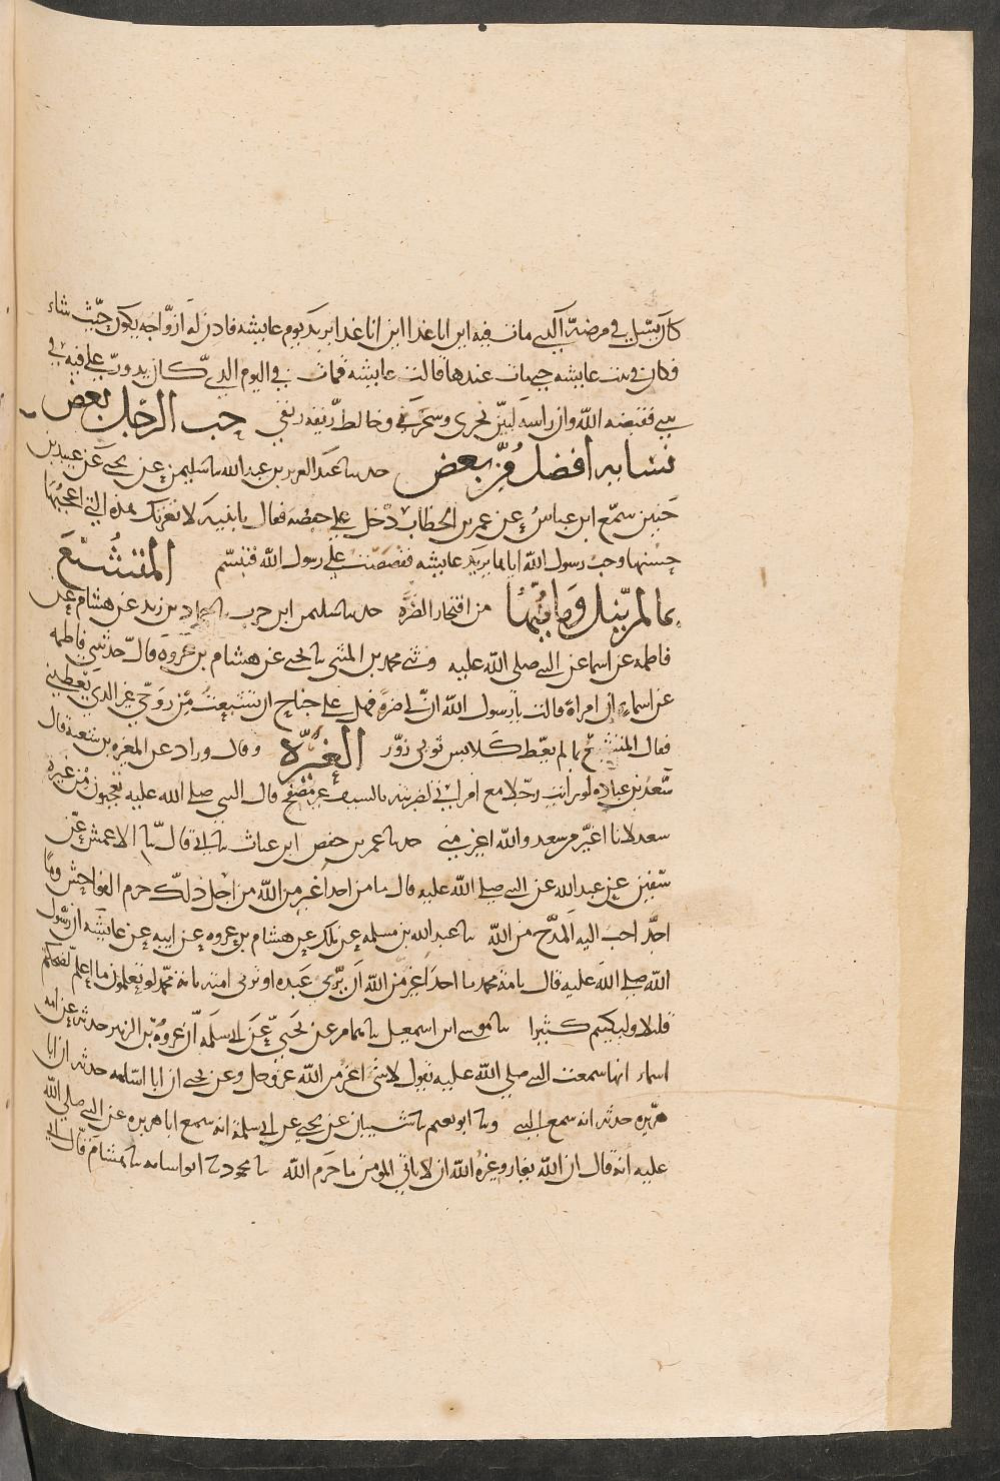 كان يسئل في مرضه الذي مات فيه اين انا غدا اين انا غدا يريد يوم عايشه فاذن له ازواجه يكون حيث شاء
فكان في بيت عايشه حتى مات عندها قالت عايشه فمات في اليوم الذي كان يدور علي فيه في
بيتي فقبضه الله وان راسه لبين نحري وسحري وخالط ريقه ريقي حب الرجل بعض
نسايه افضل من بعض حدثنا عبد العزيز بن عبد الله نا سليمن عن يحيى عن عبيد بن
حنين سمع ابن عباس عن عمر بن الخطاب دخل علي حفصه فقال يا بنيه لا تغرنك هذه التي اعجبها
حسنها وحب رسول الله اياها يريد عايشه فقصصت علي رسول الله فتبسم المتشبع
بما لم ينل وما ينهى من افتخار الضره حدثنا سليمن ابن حرب حماد بن زيد عن هشام عن
فاطمه عن اسما عن النبي صلى الله عليه وثني محمد بن المثنى نا يحيى عن هشام بن عروه قال حدثتني فاطمه
عن اسماء ان امراة قالت يا رسول الله ان لي ضره فهل علي جناح ان تشبعت من زوجي غير الذي يعطيني
فقال المتشبع بما لم يعط كلابس ثوبي زور الغيره وقال وراد عن المغيره بن شعبه قال
سعد بن عباده لو رايت رجلا مع امراتي لضربته بالسيف غير مصفح قال النبي صلى الله عليه تعجبون من غيره
سعد لانا اغير من سعد والله اغير مني حدثنا عمر بن حفص ابن غياث نا ابي قال نا الاعمش عن
شقيق عن عبد الله عن النبي صلى الله عليه قال ما من احد اغير من الله من اجل ذلك حرم الفواحش وما
احد احب اليه المدح من الله نا عبد الله بن مسلمه عن ملك عن هشام بن عروه عن ابيه عن عايشه ان رسول
الله صلى الله عليه قال يا مة محمد ما احد اغير من الله ان يرى عبده او ترى امته يا مة محمد لو تعلمون ما اعلم لضحكتم
قليلا ولبكيتم كثيرا نا موسى ابن اسمعيل نا همام عن يحيى عن ابي سلمه ان عروة بن الزبير حدثه عن امه
اسماء انها سمعت النبي صلى الله عليه يقول لا شي اغير من الله عز وجل وعن يحيى ان ابا سلمه حدثه ان ابا
هريره حدثه انه سمع النبي ونا ابو نعيم نا شيبان عن يحيى عن ابي سلمة انه سمع ابا هريره عن النبي صلى الله
عليه انه قال ان الله يغار وغيره الله ان لا ياتي المومن ما حرم الله نا محمود نا ابو اسامه نا هشام قال ابي